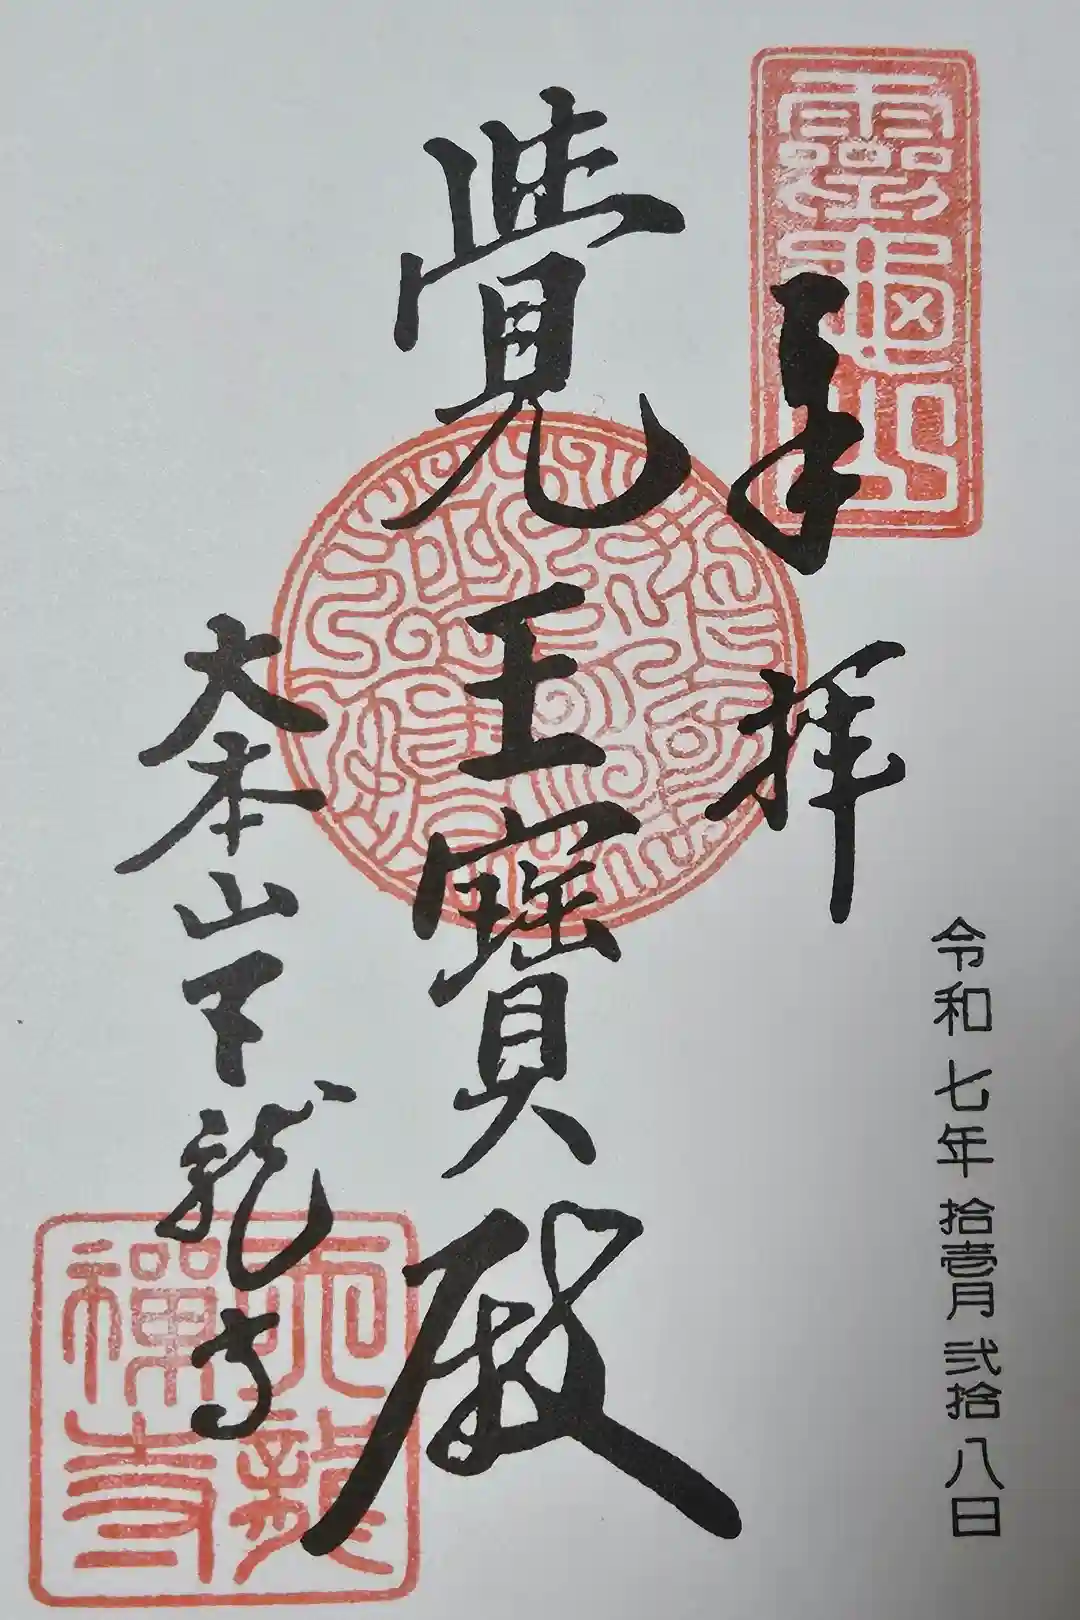 奉拝
令和七年拾壹月弐拾八日
覺王寶殿
大本山天龍寺
靈龜山
天龍
禪寺